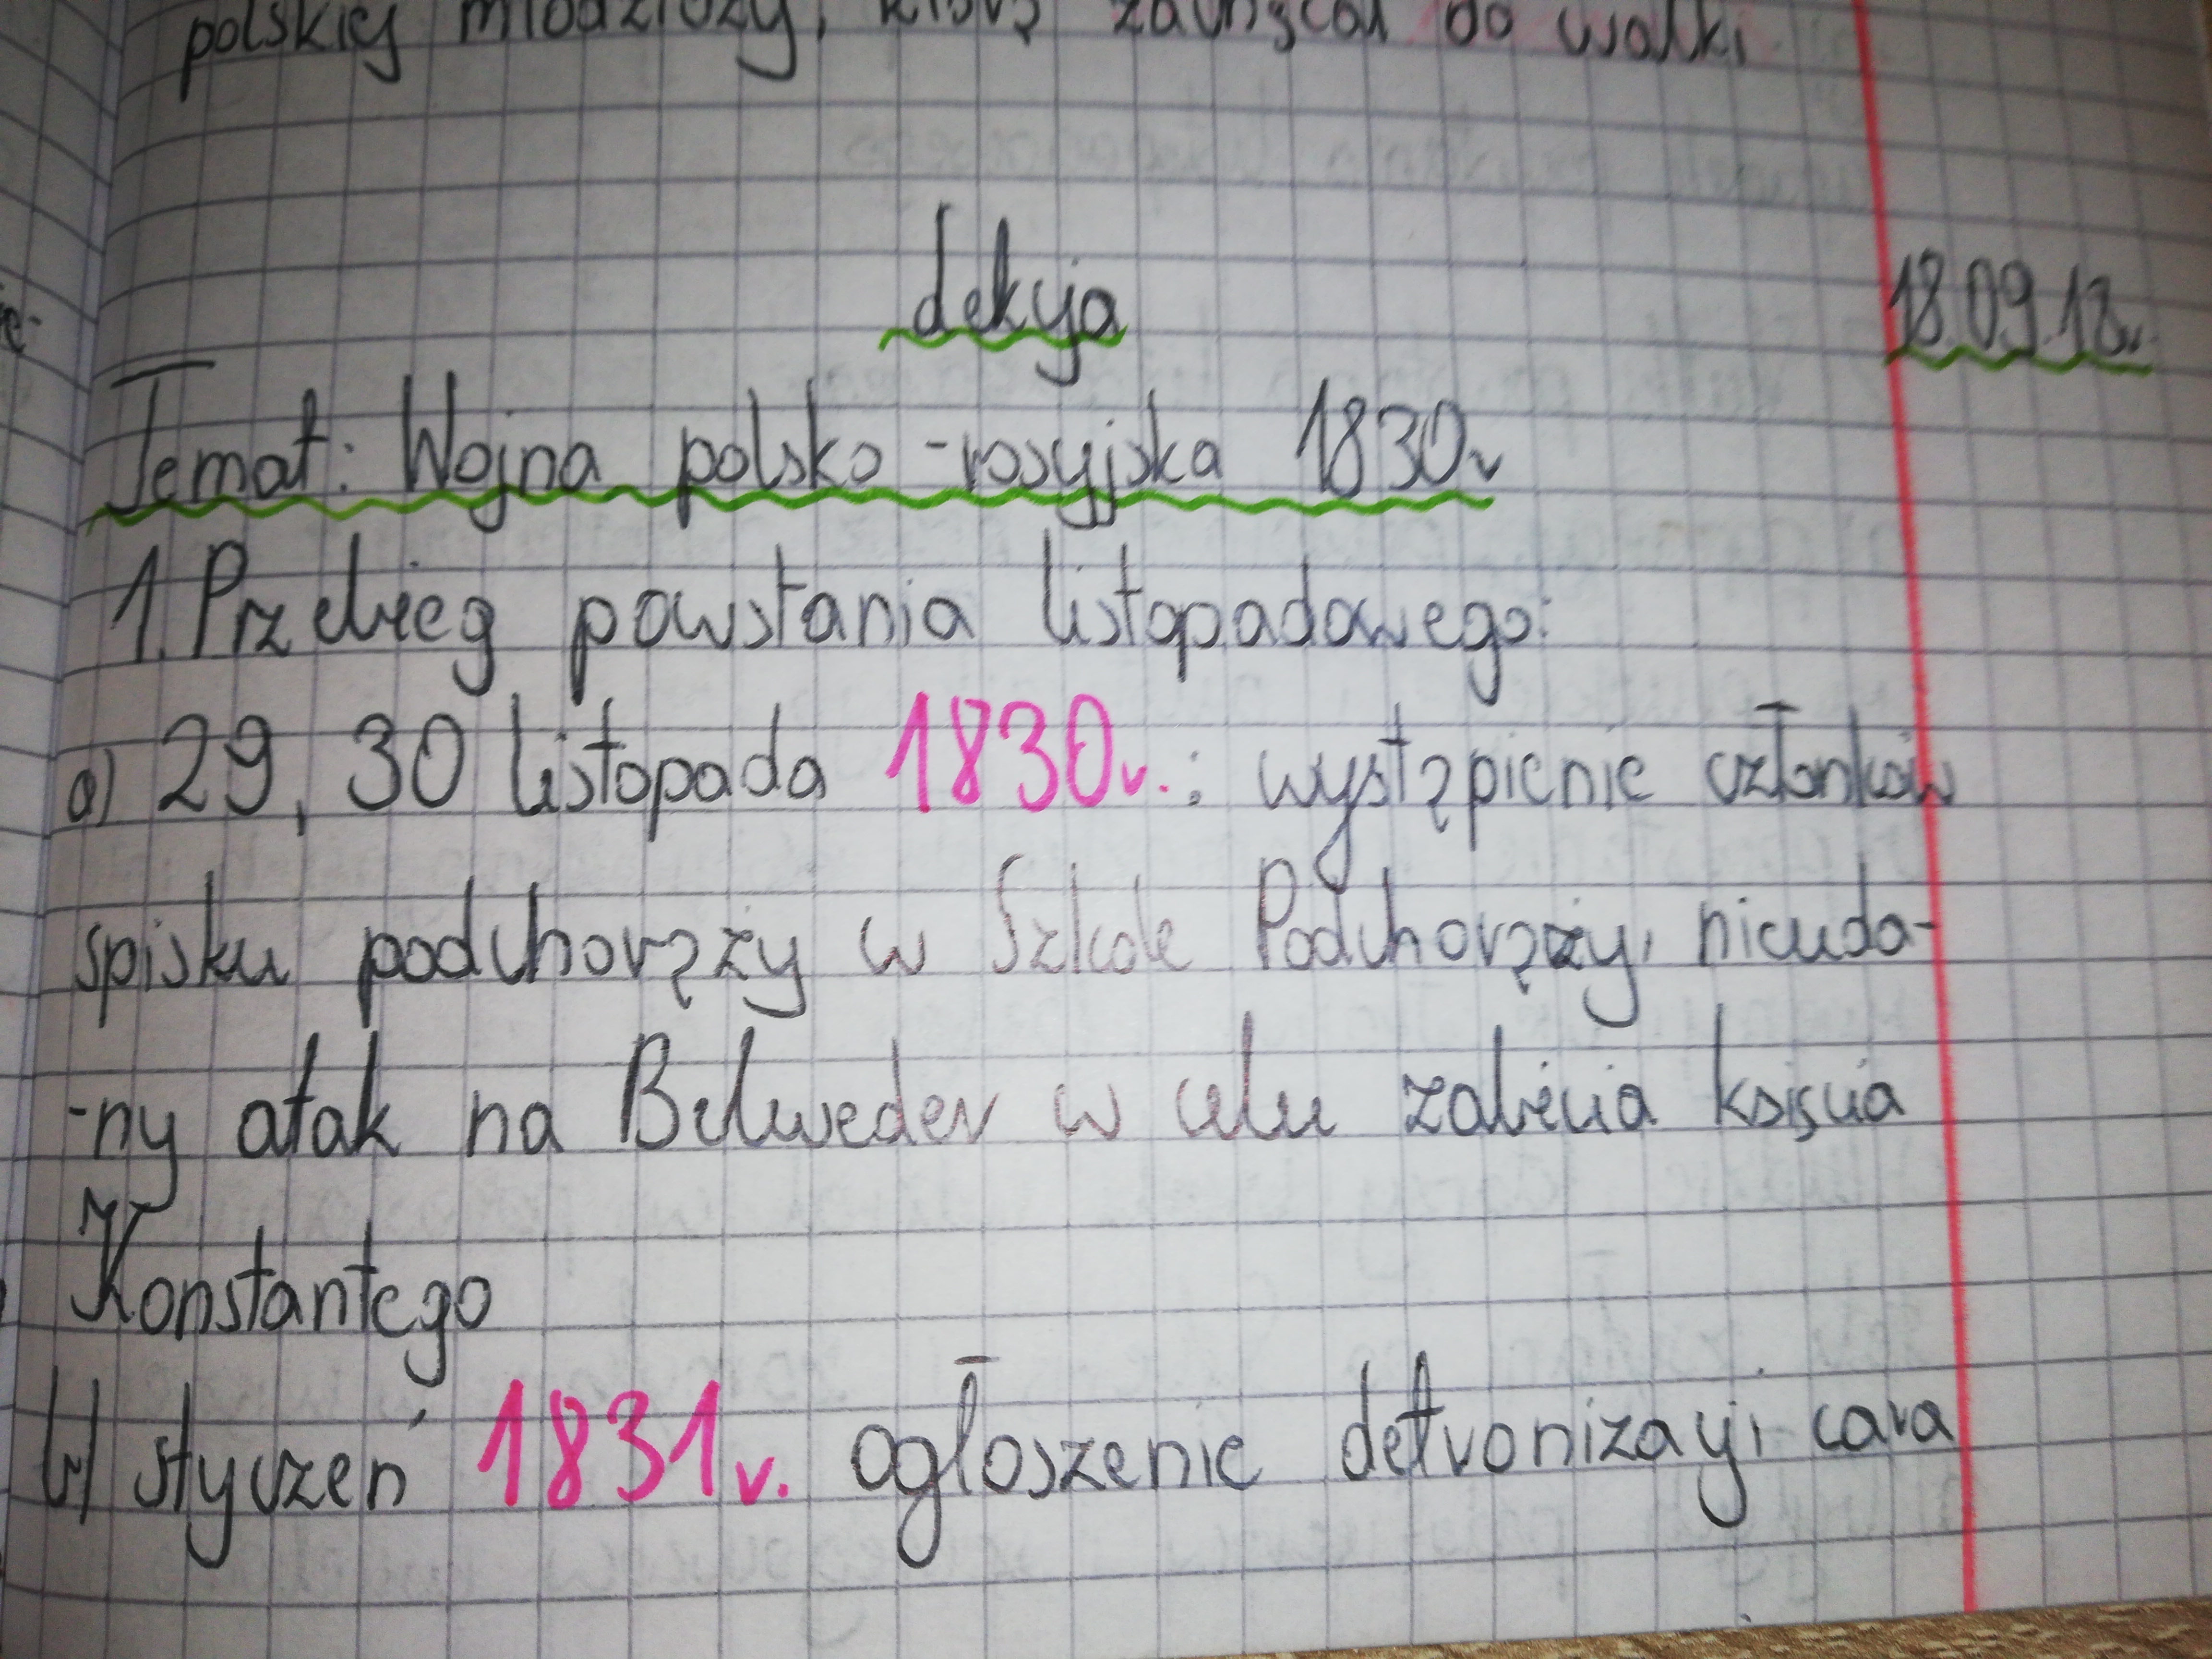 polskiej młodzieży, którą zachęcał do walki
Lekcja
18.09.18r.
Temat: Wojna polsko-rosyjska 1830r
1. Przebieg powstania listopadowego:
a) 29, 30 listopada 1830r.: wystąpienie członków
spisku podchorąży w Szkole Podchorąży, nieuda-
-ny atak na Belweder w celu zabicia księcia
Konstantego
b) styczeń 1831r. ogłoszenie detronizacji cara